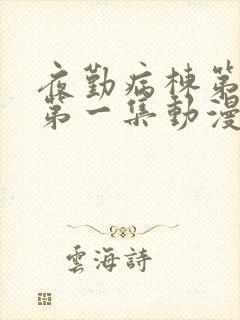 夜勤病棟第
第一集動漫
雲海詩